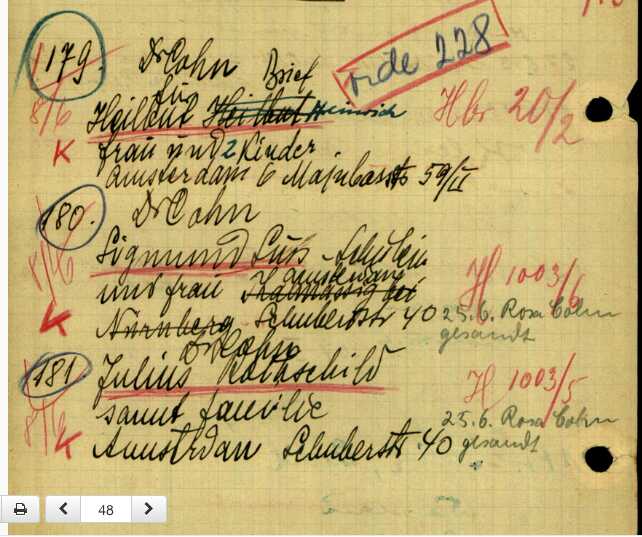 179. Dr Cohn Brief vide 228
für
Heilbut Heilbut Heinrich Hbr 20/2
8/6
K frau und 2 Kinder
Amsterdam 6 Majubastr 59/II
180. Dr Cohn
8/6 Sigmund Süss-Schülein H 1003/6
und frau Amsterdam
K Nürnberg Schuberdstr 40 25.6. Rosa Cohn
gesandt
Dr Cohn
181 Julius Rothschild H 1003/5
8/6 samt familie 25.6. Rosa Cohn
K Amstrdan Schuberstr. 40 gesandt
48